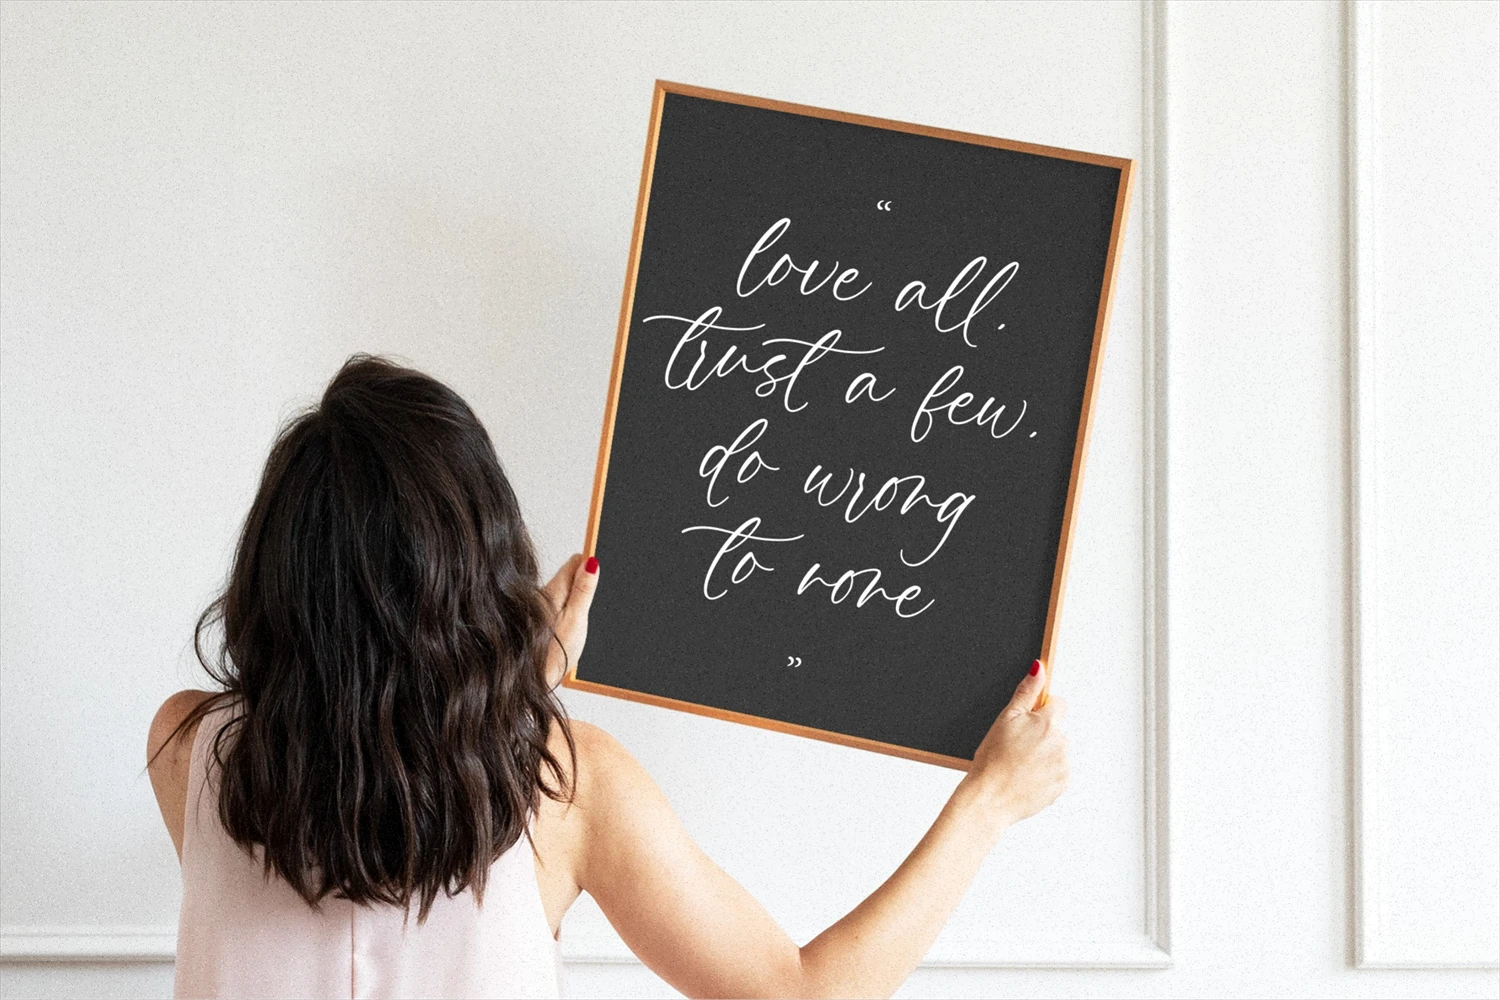 “
love all.
trust a few.
do wrong
to none
”